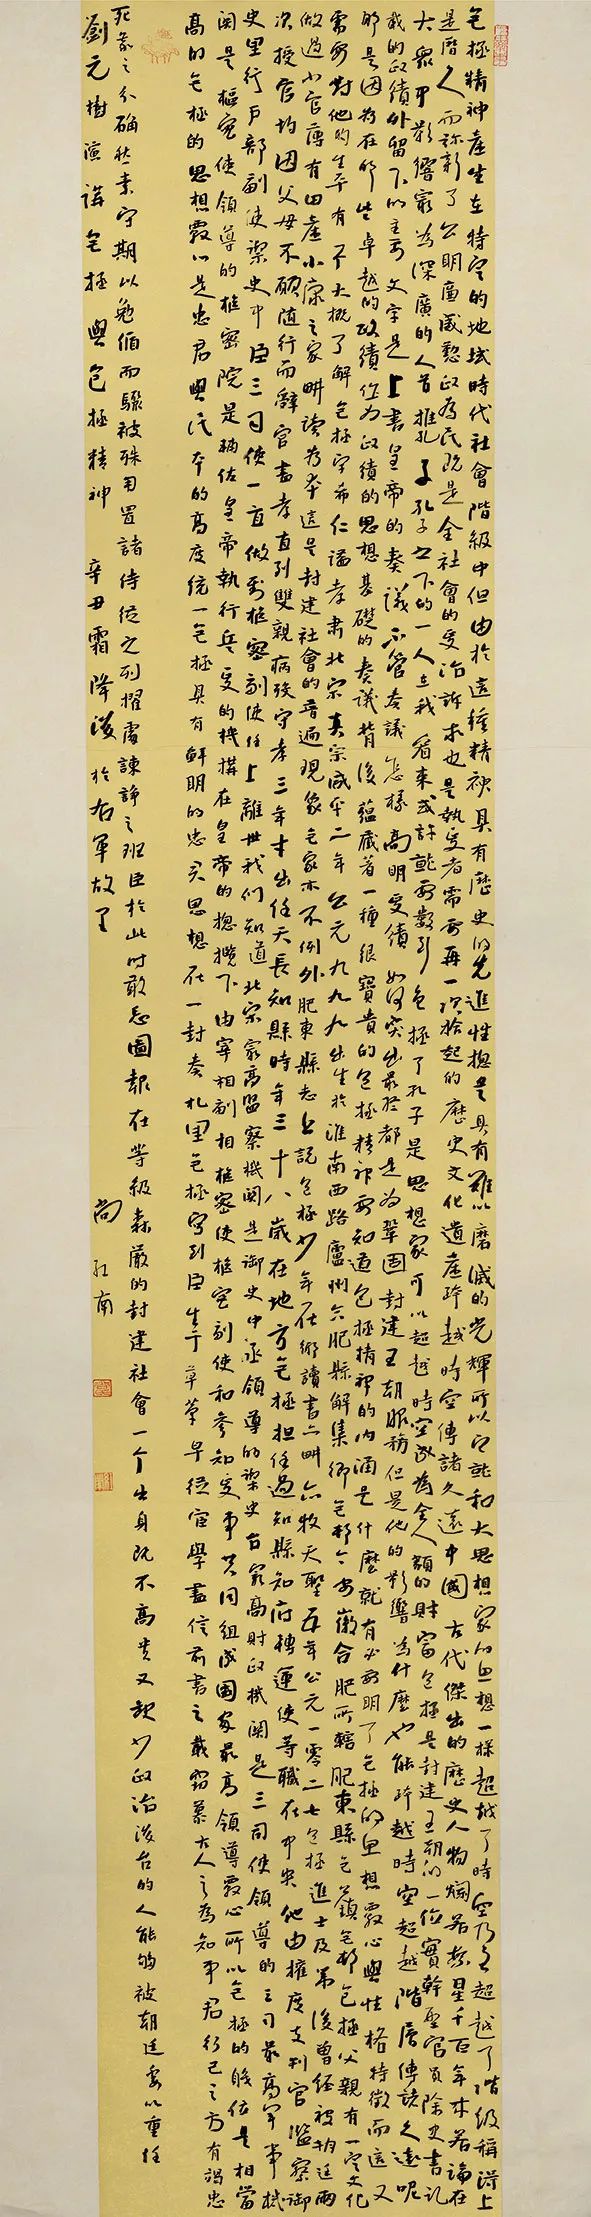 包拯精神產生在特定的地域時代社會階級中但由於這種精神具有歷史的先進性總是具有難以磨滅的光輝所以它能和大思想家的思想一樣超越了時空乃至超越了階級稱得上
是歷久而弥新了公明廉威懃政為民既是全社會的政治訴求也是執政者需要再一次拾起的歷史文化遺產跨越時空傳諸久遠中國古代傑出的歷史人物燦若繁星千百年來若論在
大眾中影響最為深廣的人首推孔子孔子之下的一人在我看來或許就要數到包拯了孔子是思想家可以超越時空成為全人類的財富包拯是封建王朝的一位實幹型官員除史書記
載的政績外留下的主要文字是上書皇帝的奏議不管奏議怎樣高明政績如何突出最終都是為鞏固封建王朝服務但是他的影響為什麼也能跨越時空超越階層傳諸久遠呢
那是因為在那些卓越的政績作為政績的思想基礎的奏議背後蘊藏著一種很寶貴的包拯精神要知道包拯精神的內涵是什麼就有必要明了包拯的思想核心與性格特徵而這又
需要對他的生平有個大概了解包拯字希仁謚孝肅北宋真宗咸平二年公元九九九出生於淮南西路廬州合肥縣解集鄉包村今安徽合肥所轄肥東縣包鎮包村包拯父親有一定文化
做過小官薄有田產小康之家耕讀為本這是封建社會的普遍現象包家亦不例外肥東縣志上說包拯少年在鄉讀書亦耕亦牧天聖五年公元一零二七包拯進士及第後曾經被朝廷兩
次授官均因父母不願隨行而辭官盡孝直到雙親病歿守孝三年才出任天長知縣時年三十八歲在地方包拯擔任過知縣知府轉運使等職在中央他由擢度支判官監察御
史里行戶部副使御史中丞三司使一直做到樞密副使任上離世我們知道北宋最高監察機關是御史中丞領導的御史台最高財政機關是三司使領導的三司最高軍事機
關是樞密使領導的樞密院是輔佐皇帝執行兵政的機構在皇帝的總攬下由宰相副相樞密使樞密副使和參知政事共同組成國家最高領導核心所以包拯的職位是相當
高的包拯的思想核心是忠君與民本的高度統一包拯具有鮮明的忠君思想在一封奏札里包拯寫到臣生于草茅早從宦學盡信前書之載竊慕古人之為知事君行己之方有竭忠
死義之分確然素守期以勉循而驟被殊用置諸侍從之列擢處諫諍之班臣於此時敢忘圖報在等級森嚴的封建社會一个出身既不高貴又缺少政治後台的人能够被朝廷委以重任
劉元樹演講包拯與包拯精神 辛丑霜降後於右軍故里 尚紅南